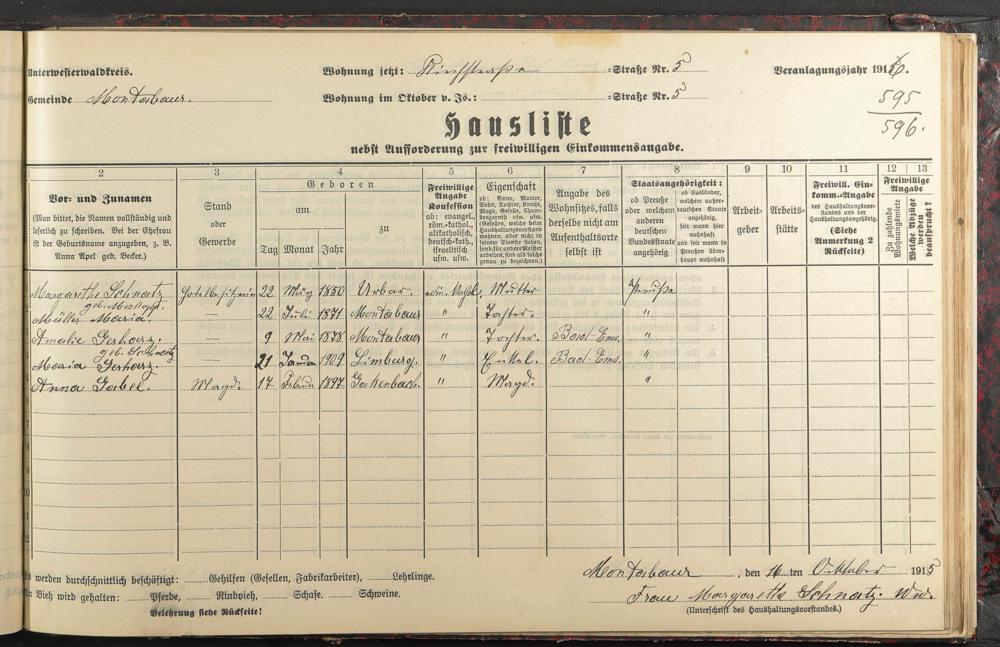 Unterwesterwaldkreis. Wohnung jetzt: Kirchstraße =Straße Nr. 5 Veranlagungsjahr 1916.
Gemeinde Montabaur. Wohnung im Oktober v. Js.: =Straße Nr. 5
595
596.
Hausliste
nebst Aufforderung zur freiwilligen Einkommensangabe.
2 3 4 5 6 7 8 9 10 11 12 13
Vor- und Zunamen
(Man bittet, die Namen vollständig und
leserlich zu schreiben. Bei der Ehefrau
ist der Geburtsname anzugeben, z. B.
Anna Apel geb. Becker.)
Stand
oder
Gewerbe
Geboren
am zu
Tag Monat Jahr
Freiwillige
Angabe
Konfession
ob: evangel.,
röm.-kathol.,
altkatholisch,
deutsch-kath.,
israelitisch
usw. usw.
Eigenschaft
ob: Vater, Mutter,
Sohn, Tochter, Knecht,
Magd, Geselle,
Angabe des
Wohnsitzes, falls
derselbe nicht am
Aufenthaltsorte
selbst ist
Staatsangehörigkeit:
ob Preuße
oder welchem
anderen
deutschen
Bundesstaate
angehörig
ob Ausländer,
welchem außer-
deutschen Staate
angehörig,
seit wann hier
wohnhaft
und seit wann in
Preußen über-
haupt wohnhaft
Arbeit-
geber
Arbeits-
stätte
Freiwill. Ein-
komm.-Angabe
des Haushaltungsvor-
standes und der
Haushaltungsangehörig.
(Siehe
Anmerkung 2
Rückseite)
Freiwillige
Angabe
Zu zahlende
Wohnungsmiete
Welche Abzüge
werden
beansprucht?
Margarethe Schnatz Hotelbesitzerin 22 März 1850 Urbar. Mutter Preuße
geb.
Müller Maria. — 22 Juli 1871 Montabaur " Tochter. "
Amalie Gerharz. — 9 Mai 1878 Montabaur " Tochter. Bad Ems. "
geb. Schnatz
Maria Gerharz. — 21 Januar 1909 Limburg. " Enkel. Bad Ems. "
Anna Gabel. Magd. 17 Februar 1897 Gackenbach. " Magd. "
Es werden durchschnittlich beschäftigt: Gehilfen (Gesellen, Fabrikarbeiter), Lehrlinge.
An Vieh wird gehalten: Pferde, Rindvieh, Schafe. Schweine.
Belehrung siehe Rückseite!
Montabaur, den 16 ten Oktober 1915
Frau Margareth Schnatz. Ww.
(Unterschrift des Haushaltungsvorstandes.)